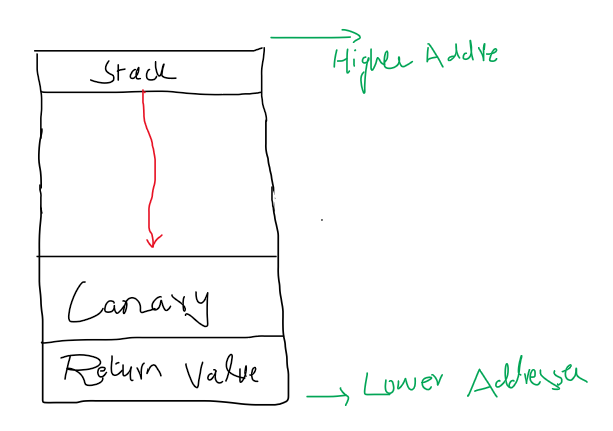 Stack
Higher Addre
Canary
Return Value
Lower Addresses